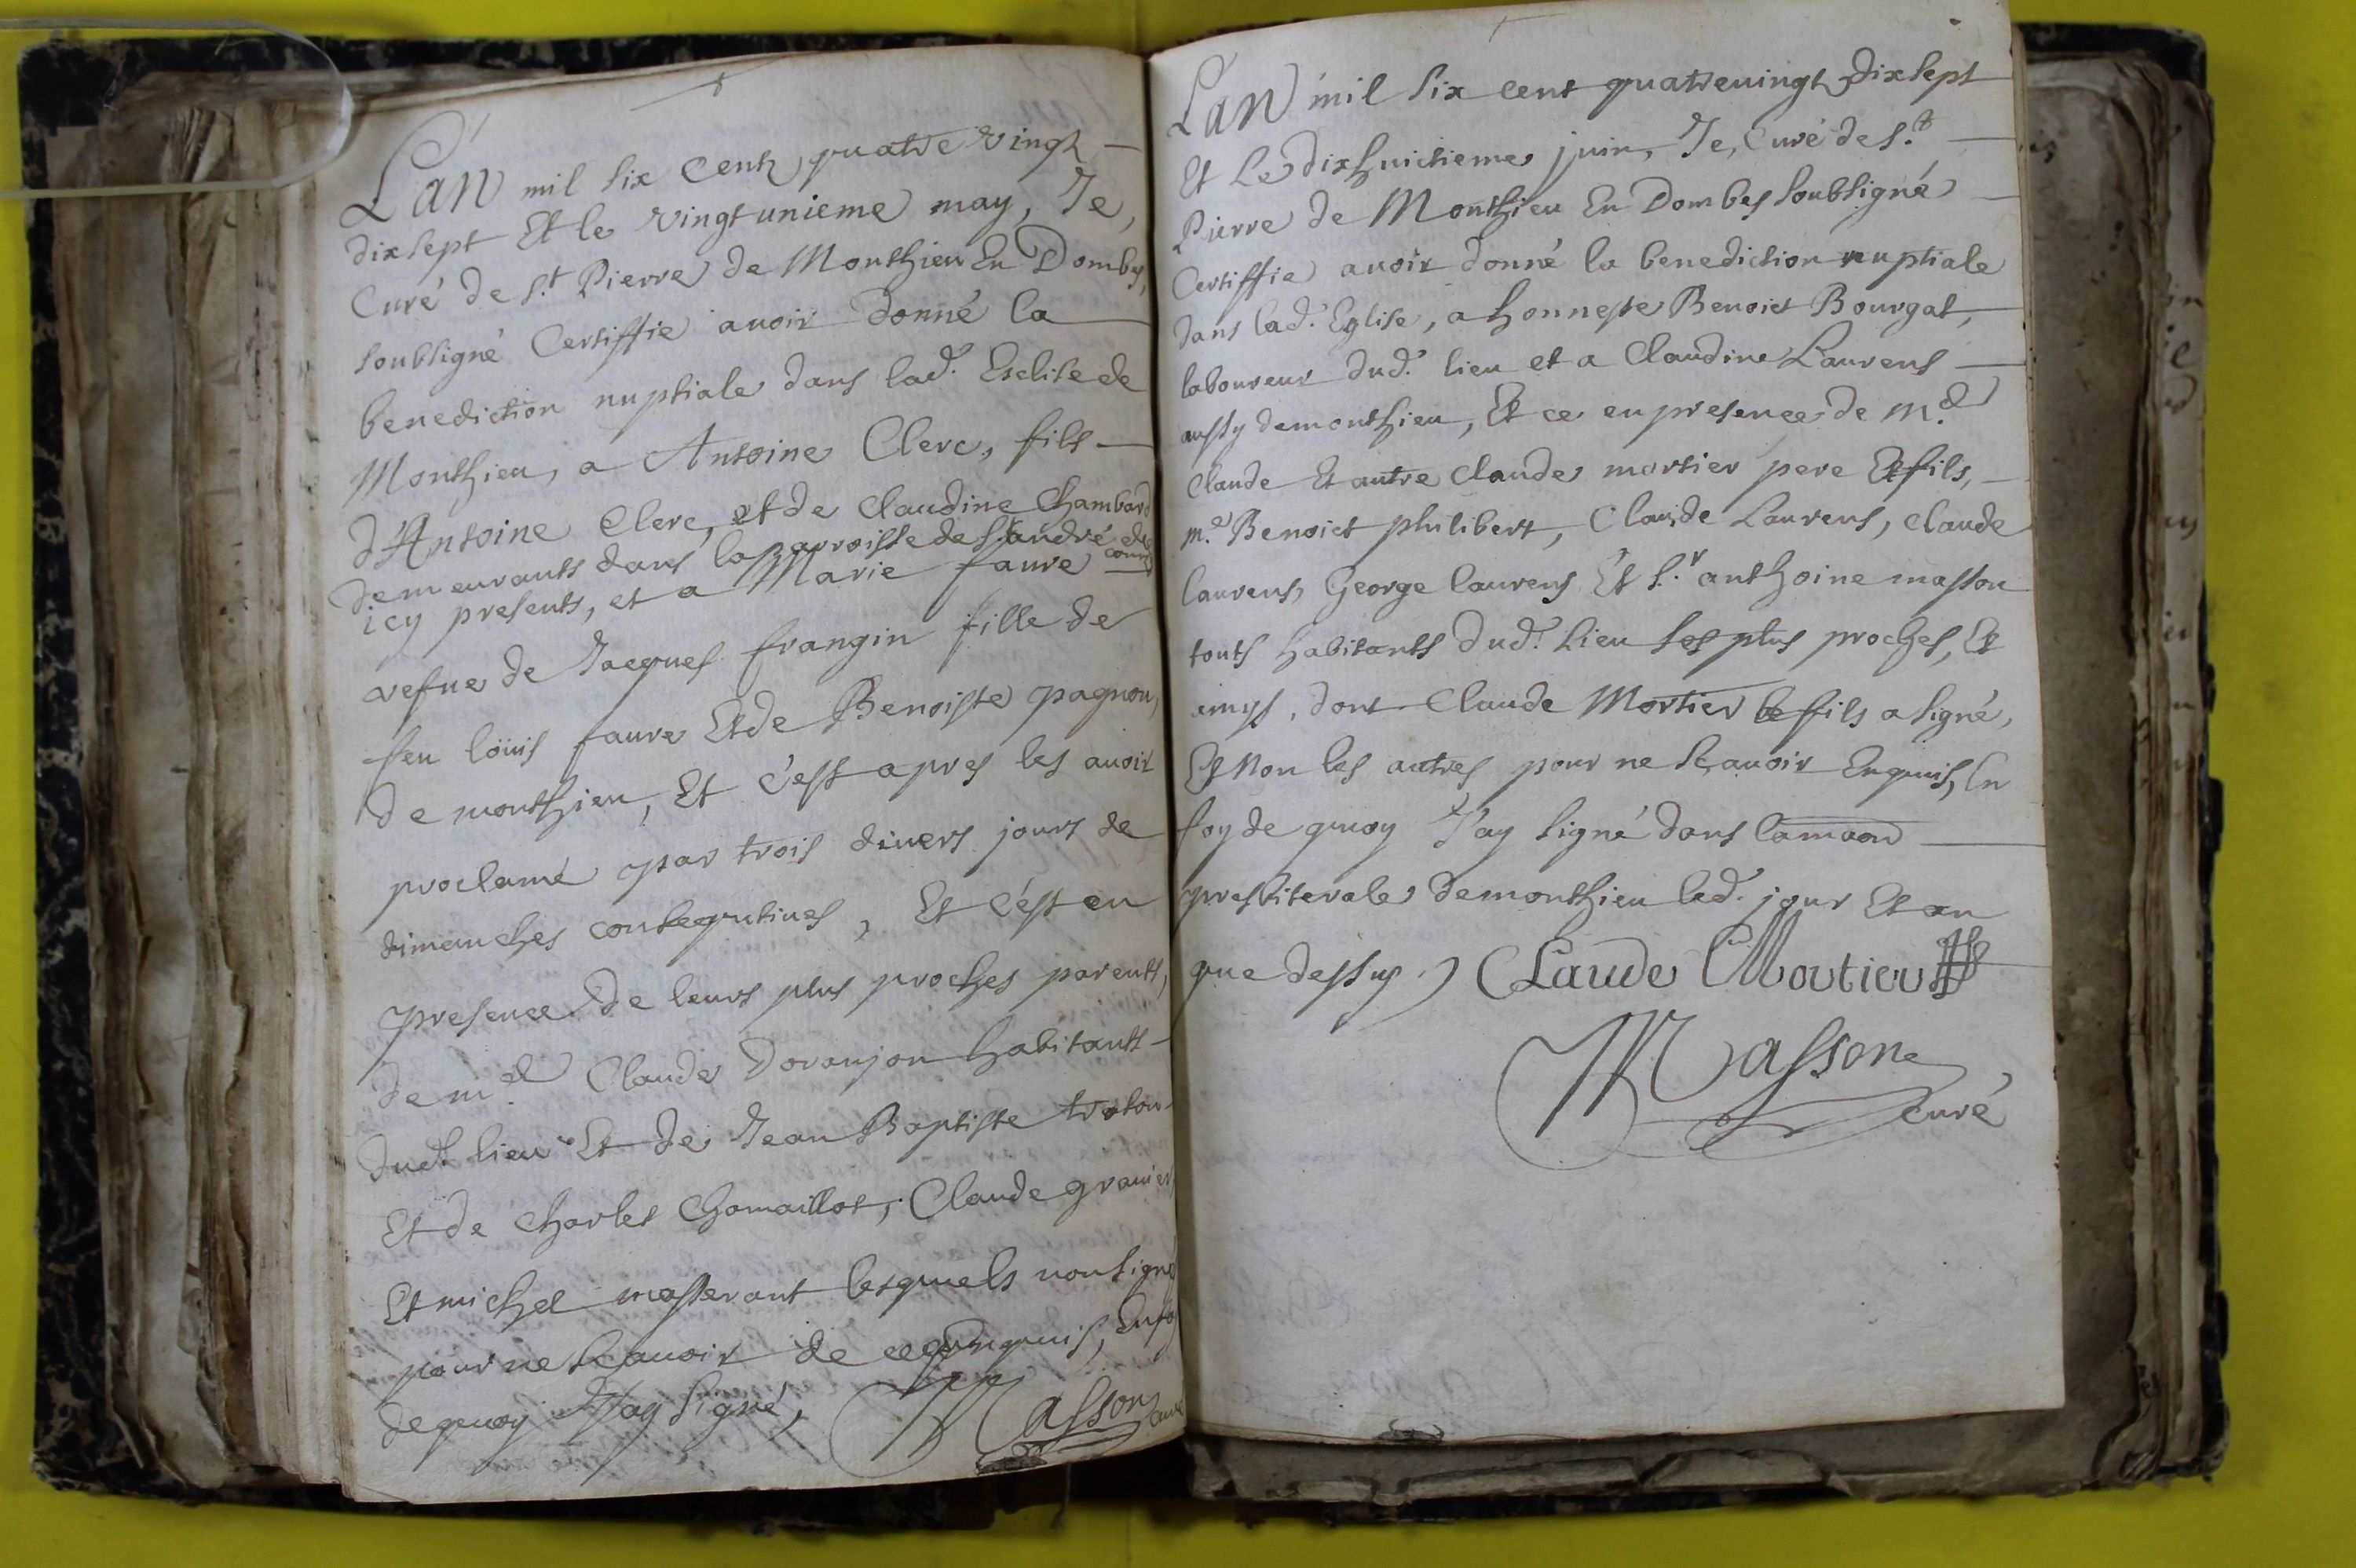 L'an mil six cent quatre vingt
dixsept Et le vingt unieme may, Je,
Curé de s.t Pierre de Monthieu En Dombes,
soubsigné Certiffie avoir donné la
benediction nuptiale dans lad. Esclise de
Monthieu, a Antoine Clerc, fils
d'Antoine Clerc, et de Claudine Chambard
demeurants dans la parroisse de s.t andré de
icy presents, et a Marie faure
vefue de Jacques frangin fille de
feu loüis faure Et de Benoiste pagnon,
de monthieu, Et c'est apres les avoir
proclamé par trois divers jours de
dimanches consequtives, Et c'est en
presence de leurs plus proches parents,
de m.e Claude Doranjon habitants
dud lieu Et de Jean Baptiste
Et de Charles Chamaillot, Claude granier
Et michel masserant lesquels non signé
pour ne scavoir de ce enquis, En foy
de quoy J'ay signé, Masson curé
L'an mil six cent quatrevingt dixsept
Et Le dixhuictieme juin, Je, Curé de s.t
Pierre de Monthieu En Dombes soubsigné
Certiffie avoir donné la benediction nuptiale
dans lad. Eglise, a honneste Benoict Bourgat,
laboureur dud. lieu et a Claudine Laurens
aussy demonthieu, Et ce en presence de m.e
Claude Et autre Claude mortier pere Et fils,
m.e Benoict philibert, Claude Laurens, Claude
laurens, George laurens Et s.r anthoine masson
touts habitants dud. lieu les plus proches, Et
amys, dont Claude Mortier le fils a signé,
Et Non les autres pour ne scavoir Enquis, En
foy de quoy J'ay signé dans la maon
presbiterale demonthieu led. jour Et an
que dessus. Claude Mortier
Masson
curé